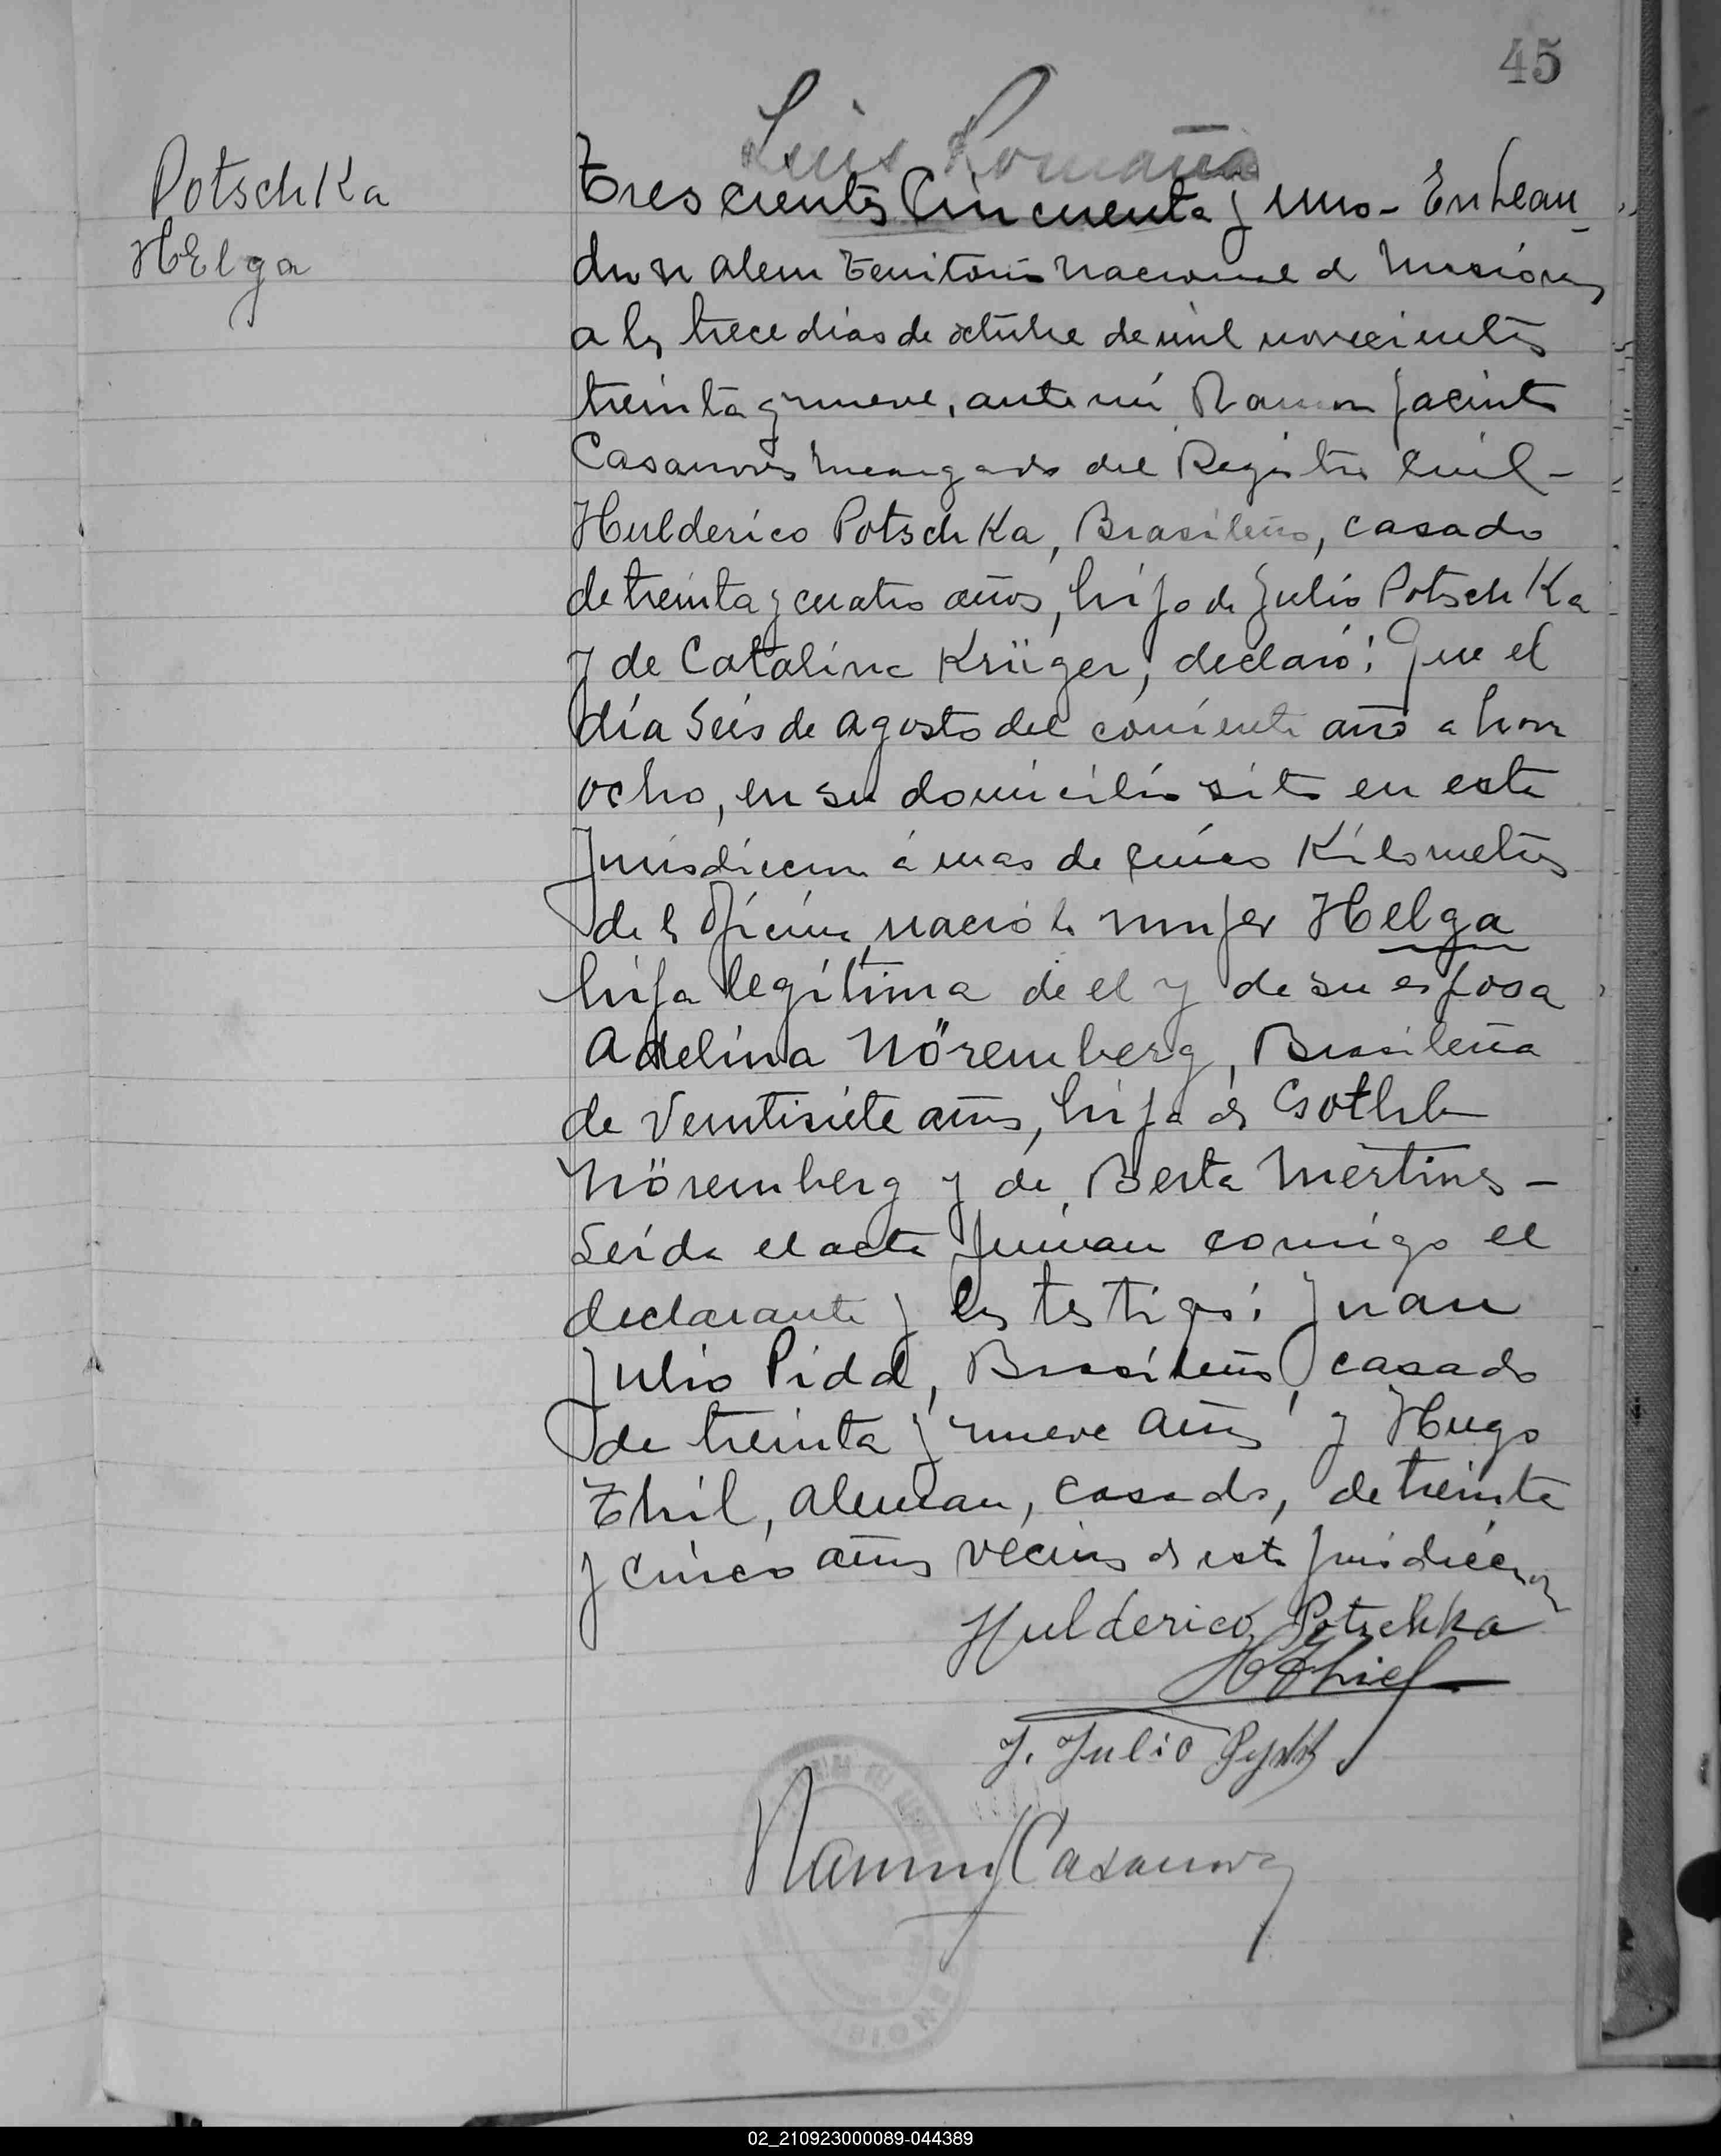 45
Luis Romaña
Potschka
Helga
Trescientos Cincuenta y uno - En Lean
dro N Alem Territorio Nacional de Misiones
a los trece dias de octubre de mil novecientos
treinta y nueve, ante mí Ramon Jacinto
Casanova Encargado del Registro Civil -
Hulderico Potschka, Brasileño, casado
de treinta y cuatro años, hijo de Julio Potschka
y de Catalina Krüger, declaró: Que el
día Seis de Agosto del corriente año a hora
ocho, en su domicilio sito en esta
Jurisdiccion á mas de cinco Kilometros
de la Oficina nació la mujer Helga
hija legítima de el y de su esposa
Adelina Nöremberg, Brasileña
de Veintisiete años, hija de Gotlib
Nöremberg y de Berta Mertins -
Leída el acta firman conmigo el
declarante y los testigos: Juan
Julio Pidd, Brasileño, casado
de treinta y nueve años, y Hugo
Thil, Aleman, casado, de treinta
y cinco años vecinos de esta jurisdiccion
Hulderico Potschka
H Thiel
J. Julio
Ramon J Casanova
MISIONES
02_210923000089-044389